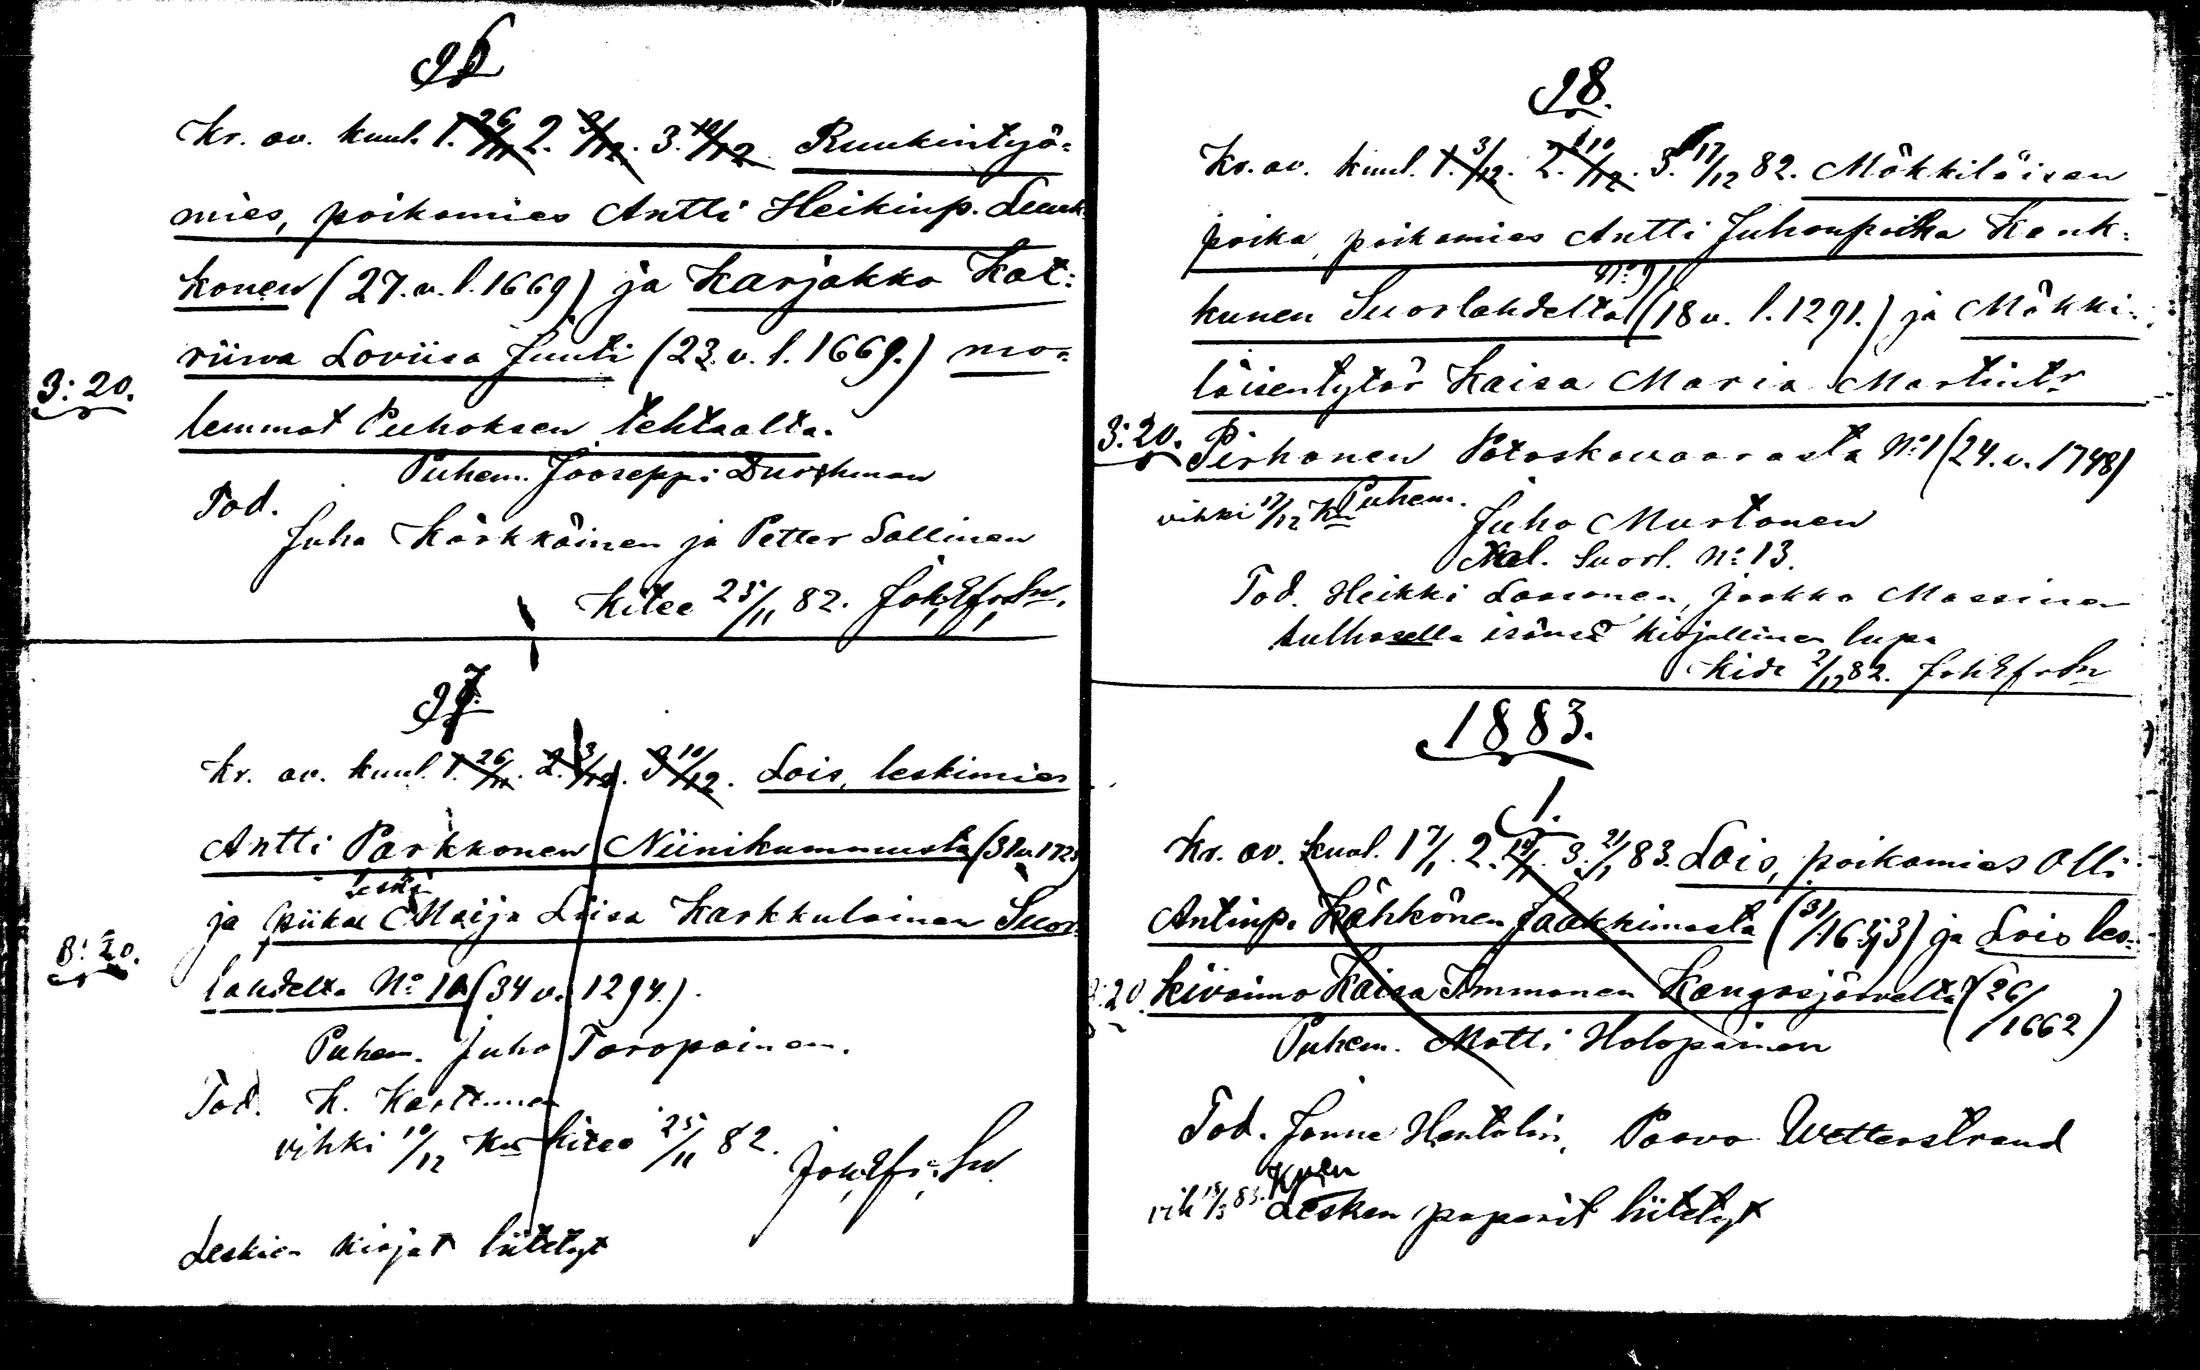 96
Kr. av. kuul. 1. 26/11 2. 3/12. 3. 10/12 Ruukintyö=
mies, poikamies Antti Heikinp. Leuk
konen (27. v. l. 1669) ja Karjakko Kat=
riina Loviisa Juuti (23. v. l. 1669.) mo=
3: 20.
lemmat Puhoksen tehtaalta.
Puhem. Jooseppi Durchman
Tod.
Juho Kärkkäinen ja Petter Sallinen
Kitee 25/11 82.
97.
Kr. av. kuul. 1. 26/11. 2. 3/12. 3 10/12. Lois, leskimies
Antti Parkkonen Niinikummusta
leski
ja piika Maija Liisa Karkkulainen Suor=
3: 20.
lahdelta No 10 (34 v. 1294.).
Puhem. Juho Toropainen.
Tod. H. Karttunen
vihki 10/12 Kitee 25/11 82.
Leskien kirjat liitetyt
98.
Kr. av. kuul. 1. 3/12. 2. 10/12. 3. 17/12 82. Mökkiläisen
poika, poikamies Antti Juhonpoika Kauk=
kunen Suorlahdelta (18 v. l. 1291.) ja Mökki=
läisentytär Kaisa Maria Martintr
3: 20. Pirhonen Potoskavaarasta No 1 (24. v. 1748)
vihki 17/12 Puhem.
Juho Murtonen
Suorl. No 13.
Tod. Heikki Laasonen, Jaakko Massinen
sulhasella isänsä kirjallinen lupa
Kide 2/12 82.
1883.
1.
Kr. av. kuul. 1 7/1. 2. 14/1. 3. 21/1 83. Lois, poikamies Olli
Antinp. Kähkönen Jaakkimasta (31/1653) ja Lois les=
3:20. kivaimo Kaisa Immonen Kangasjärveltä (26/1662)
Puhem. Matti Holopainen
Tod. Janne Hentolin, Paavo Wetterstrand
Lesken paperit liitetyt